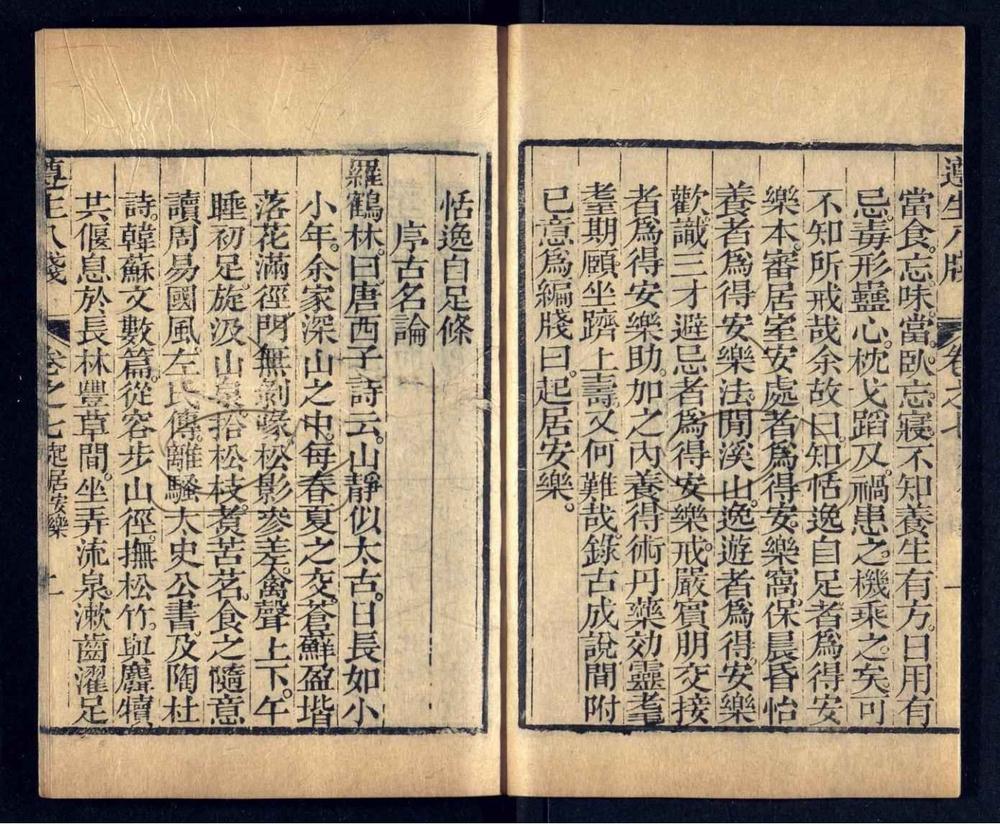 遵生八牋 卷之七
當食忘味。當臥忘寢不知養生有方。日用有
忌。毒形蠱心。枕戈蹈刄。禍患之機乘之矣。可
不知所戒哉。余故曰。知恬逸自足者。爲得安
樂本。審居室安處者。爲得安樂窩。保晨昏怡
養者。爲得安樂法。閒溪山逸遊者。爲得安樂
歡。識三才避忌者。爲得安樂戒。嚴賓朋交接
者。爲得安樂助。加之內養得術。丹藥効靈。耄
耋期頤。坐躋上壽。又何難哉。錄古成說。間附
已意。爲編牋曰。起居安樂。
恬逸自足條
序古名論
羅鶴林曰。唐西子詩云。山靜似太古。日長如小
小年。余家深山之中。每春夏之交。蒼蘚盈堦
落花滿徑。門無剝啄。松影參差。禽聲上下。午
睡初足。旋汲山泉。拾松枝。煮苦茗。食之。隨意
讀周易國風。左氏傳。離騷。太史公書。及陶杜
詩。韓蘇文數篇。從容步山徑。撫松竹。與麛犢
共偃息於長林豐草間。坐弄流泉。漱齒濯足
遵生八牋 卷之七 起居安樂